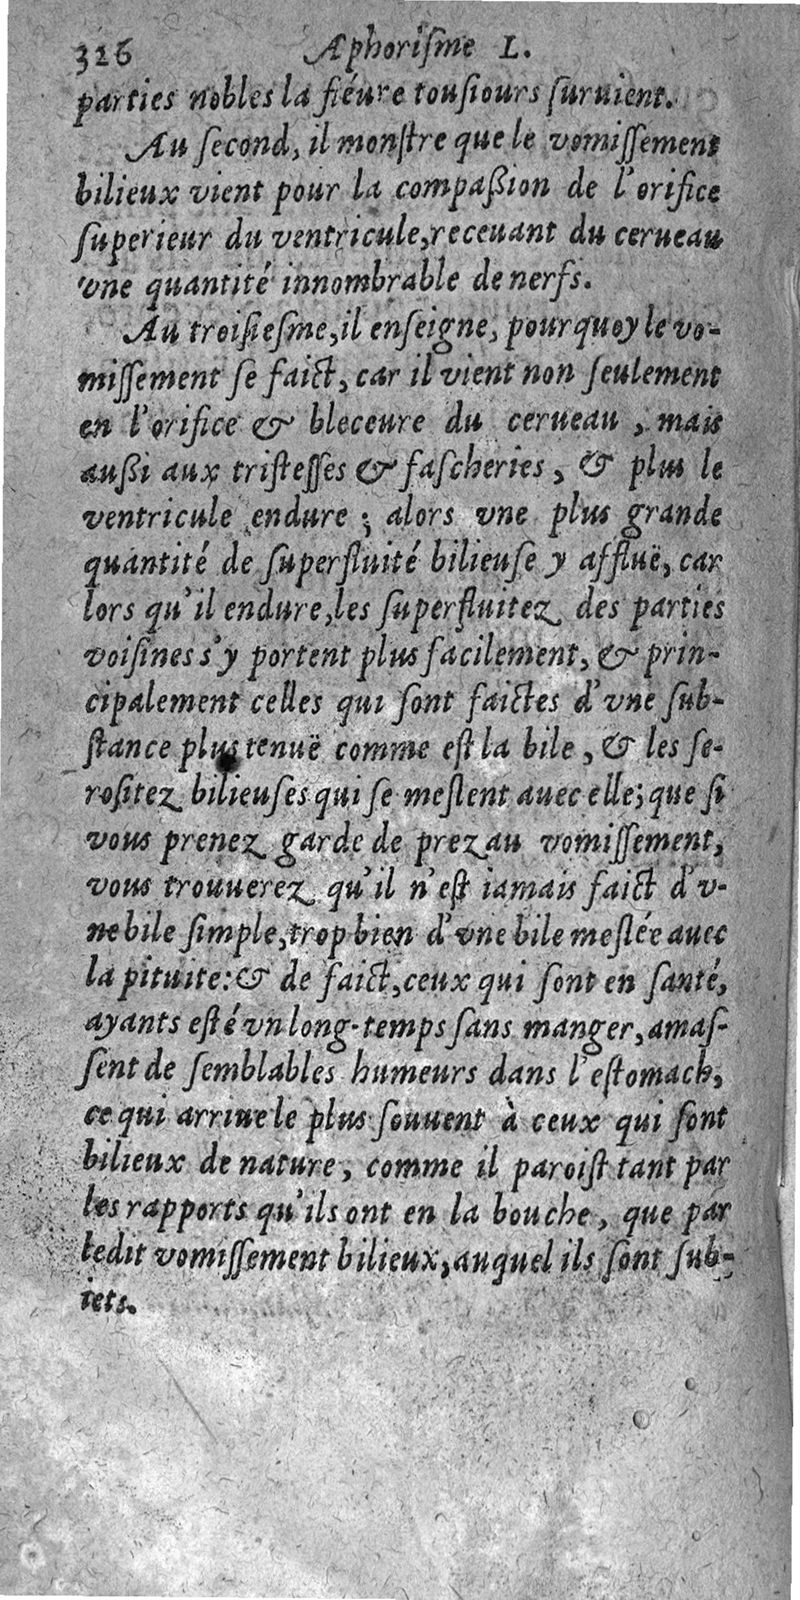 326 Æphoriſme L.
parties nobles la fiéure touſiours ſuruient.
Au ſecond, il monſtre que le vomiſſement
bilieux vient pour la compaßion de l'orifice
ſuperieur du ventricule, receuant du cerueau
vne quantité innombrable de nerfs.
Au troiſieſme, il enſeigne, pourquoy le vo-
miſſement ſe faict, car il vient non ſeulement
en l'orifice & bleceure du cerueau, mais
außi aux triſteſſes & faſcheries, & plus le
ventricule endure; alors vne plus grande
quantité de ſuperfluité bilieuſe y affluë, car
lors qu'il endure, les ſuperfluitez des parties
voiſines s'y portent plus facilement, & prin-
cipalement celles qui ſont faictes d'vne ſub-
ſtance plus tenuë comme eſt la bile, & les ſe-
roſitez bilieuſes qui ſe meſlent auec elle; que ſi
vous prenez garde de prez au vomiſſement,
vous trouuerez qu'il n'eſt iamais faict d'v-
ne bile ſimple, trop bien d'vne bile meſlée auec
la pituite: & de faict, ceux qui ſont en ſanté,
ayants eſté vn long-temps ſans manger, amaſ-
ſent de ſemblables humeurs dans l'eſtomach,
ce qui arriue le plus ſouuent à ceux qui ſont
bilieux de nature, comme il paroiſt tant par
les rapports qu'ils ont en la bouche, que par
ledit vomiſſement bilieux, auquel ils ſont ſub-
iets.